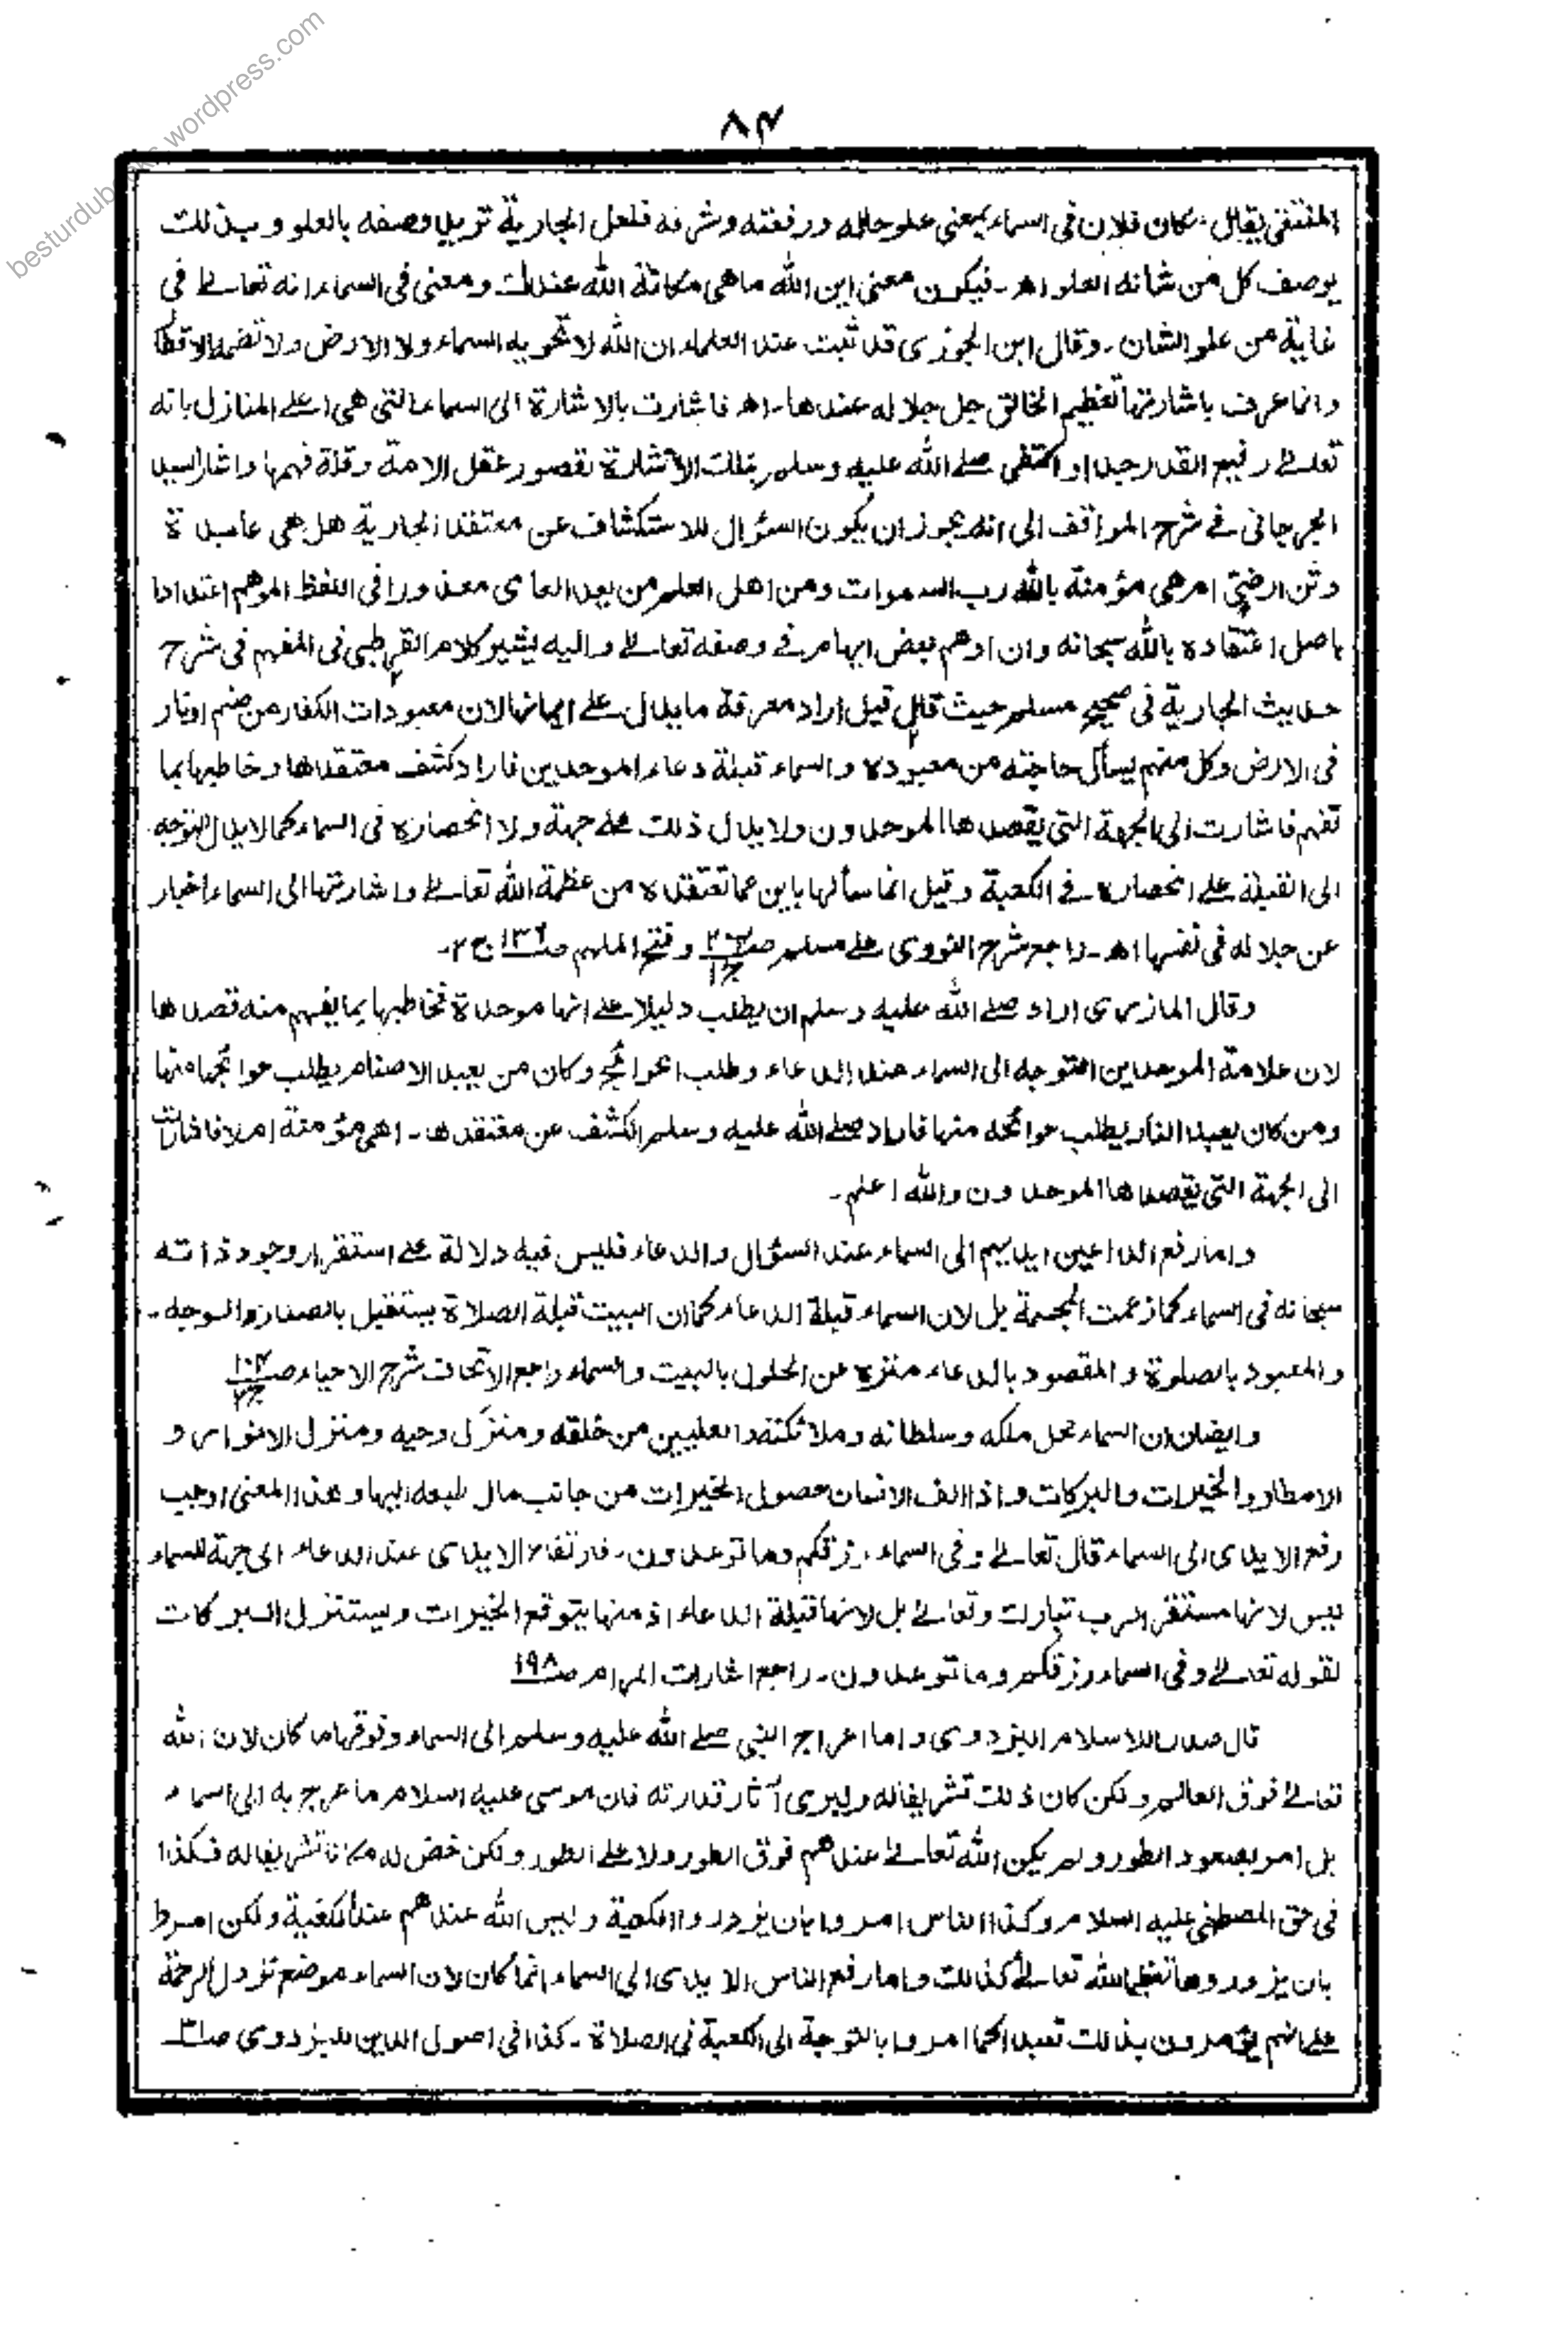 besturdubooks.wordpress.com
٨٤
المنتقى يقال مكان فلان فى السماء بمعنى علو حاله ورفعته وشرفه فلعل الجارية تريد وصفه بالعلو وبذلك
يوصف كل من شانه العلو اھ۔ فيكون معنى اين الله ما هى مكانة الله عندك ومعنى فى السماء انه تعالے فى
غاية من علو الشان۔ وقال ابن الجوزى قد ثبت عند العلماء ان الله لا تحويه السماء ولا الارض ولا تضمه الاقطار
وانما عرف باشارتها تعظيم الخالق جل جلاله عندها۔ اھ فاشارت بالاشارة الى السماء التى هى اعلے المنازل بانه
تعالے رفيع القدر جدا واكتفى صلے الله عليه وسلم بتلك الاشارة لقصور عقل الامة وقلة فهمها واشار السيد
الجرجانى فے شرح المواقف الى انه يجوز ان يكون السؤال للاستكشاف عن معتقد الجارية هل هى عابدة
وثن ارضى ام هى مؤمنة بالله رب السموات ومن اهل العلم من يعد العامى معذورا فى اللفظ الموهم اعتدادا
باصل اعتقاده بالله سبحانه وان اوهم بعض ايهام فے وصفه تعالے واليه يشير كلام القرطبى فى المفهم فى شرح
حديث الجارية فى صحيح مسلم حيث قال قيل اراد معرفة ما يدل على ايمانها لان معبودات الكفار من صنم او نار
فى الارض وكل منهم يسأل حاجته من معبوده والسماء قبلة دعاء الموحدين فاراد كشف معتقدها وخاطبها بما
تفهم فاشارت الى الجهة التى يقصدها الموحدون ولا يدل ذلك علے جهة ولا انحصاره فى السماء كما لا يدل التوجه
الى القبلة على انحصاره فے الكعبة وقيل انما سألها باين عما تعتقده من عظمة الله تعالے واشارتها الى السماء اخبار
عن جلاله فى نفسها اھ۔ راجع شرح النووى علے مسلم وفتح الملهم ج٢۔
وقال المازرى اراد صلے الله عليه وسلم ان يطلب دليلا علے انها موحدة فخاطبها بما يفهم منه قصدها
لان علامة الموحدين التوجه الى السماء عند الدعاء وطلب الحوائج وكان من يعبد الاصنام يطلب حوائجها منها
ومن كان يعبد النار يطلب حوائجه منها فاراد صلے الله عليه وسلم الكشف عن معتقدها۔ اهى مؤمنة ام لا فاشارت
الى الجهة التى يقصدها الموحدون والله اعلم۔
واما رفع الداعين ايديهم الى السماء عند السؤال والدعاء فليس فيه دلالة علے استقرار وجود ذاته
سبحانه فى السماء كما زعمت المجسمة بل لان السماء قبلة الدعاء كما ان البيت قبلة الصلاة يستقبل بالصدر والوجه۔
والمعبود بالصلوة والمقصود بالدعاء منزه عن الحلول بالبيت والسماء راجع الاتحاف شرح الاحياء
وايضا ان السماء محل ملكه وسلطانه وملائكته العليين من خلقه ومنزل وحيه ومنزل الانوار و
الامطار والخيرات والبركات واذا الف الانسان حصول الخيرات من جانب مال طبعه اليها وهذا المعنى اوجب
رفع الايدى الى السماء قال تعالے وفى السماء رزقكم وما توعدون۔ فارتفاع الايدى عند الدعاء الى جهة السماء
ليس لانها مستقر الرب تبارك وتعالے بل لانها قبلة الدعاء اذ منها يتوقع الخيرات ويستنزل البركات
لقوله تعالے وفى السماء رزقكم وما توعدون۔ راجع اشارات المرام صـ١٩٨
قال صدر الاسلام البزدوى واما اعراج النبى صلے الله عليه وسلم الى السماء وفوقها ما كان لان الله
تعالے فوق العالم ولكن كان ذلك تشريفا له وليرى آثار قدرته فان موسى عليه السلام ما عرج به الى السماء
بل امر بصعود الطور ولم يكن الله تعالے عندهم فوق الطور ولا على الطور ولكن خص له مكانا تشريفا له فكذا
فى حق المصطفى عليه السلام وكذا الناس امروا بان يزوروا الكعبة وليس الله عندهم عند الكعبة ولكن امروا
بان يزوروها تعظيما لله تعالے كذلك واما رفع الناس الايدى الى السماء انما كان لان السماء موضع نزول الرحمة
علے انهم يؤمرون بذلك تعبدا كما امروا بالتوجة الى الكعبة فى الصلاة۔ كذا فى اصول الدين للبزدوى